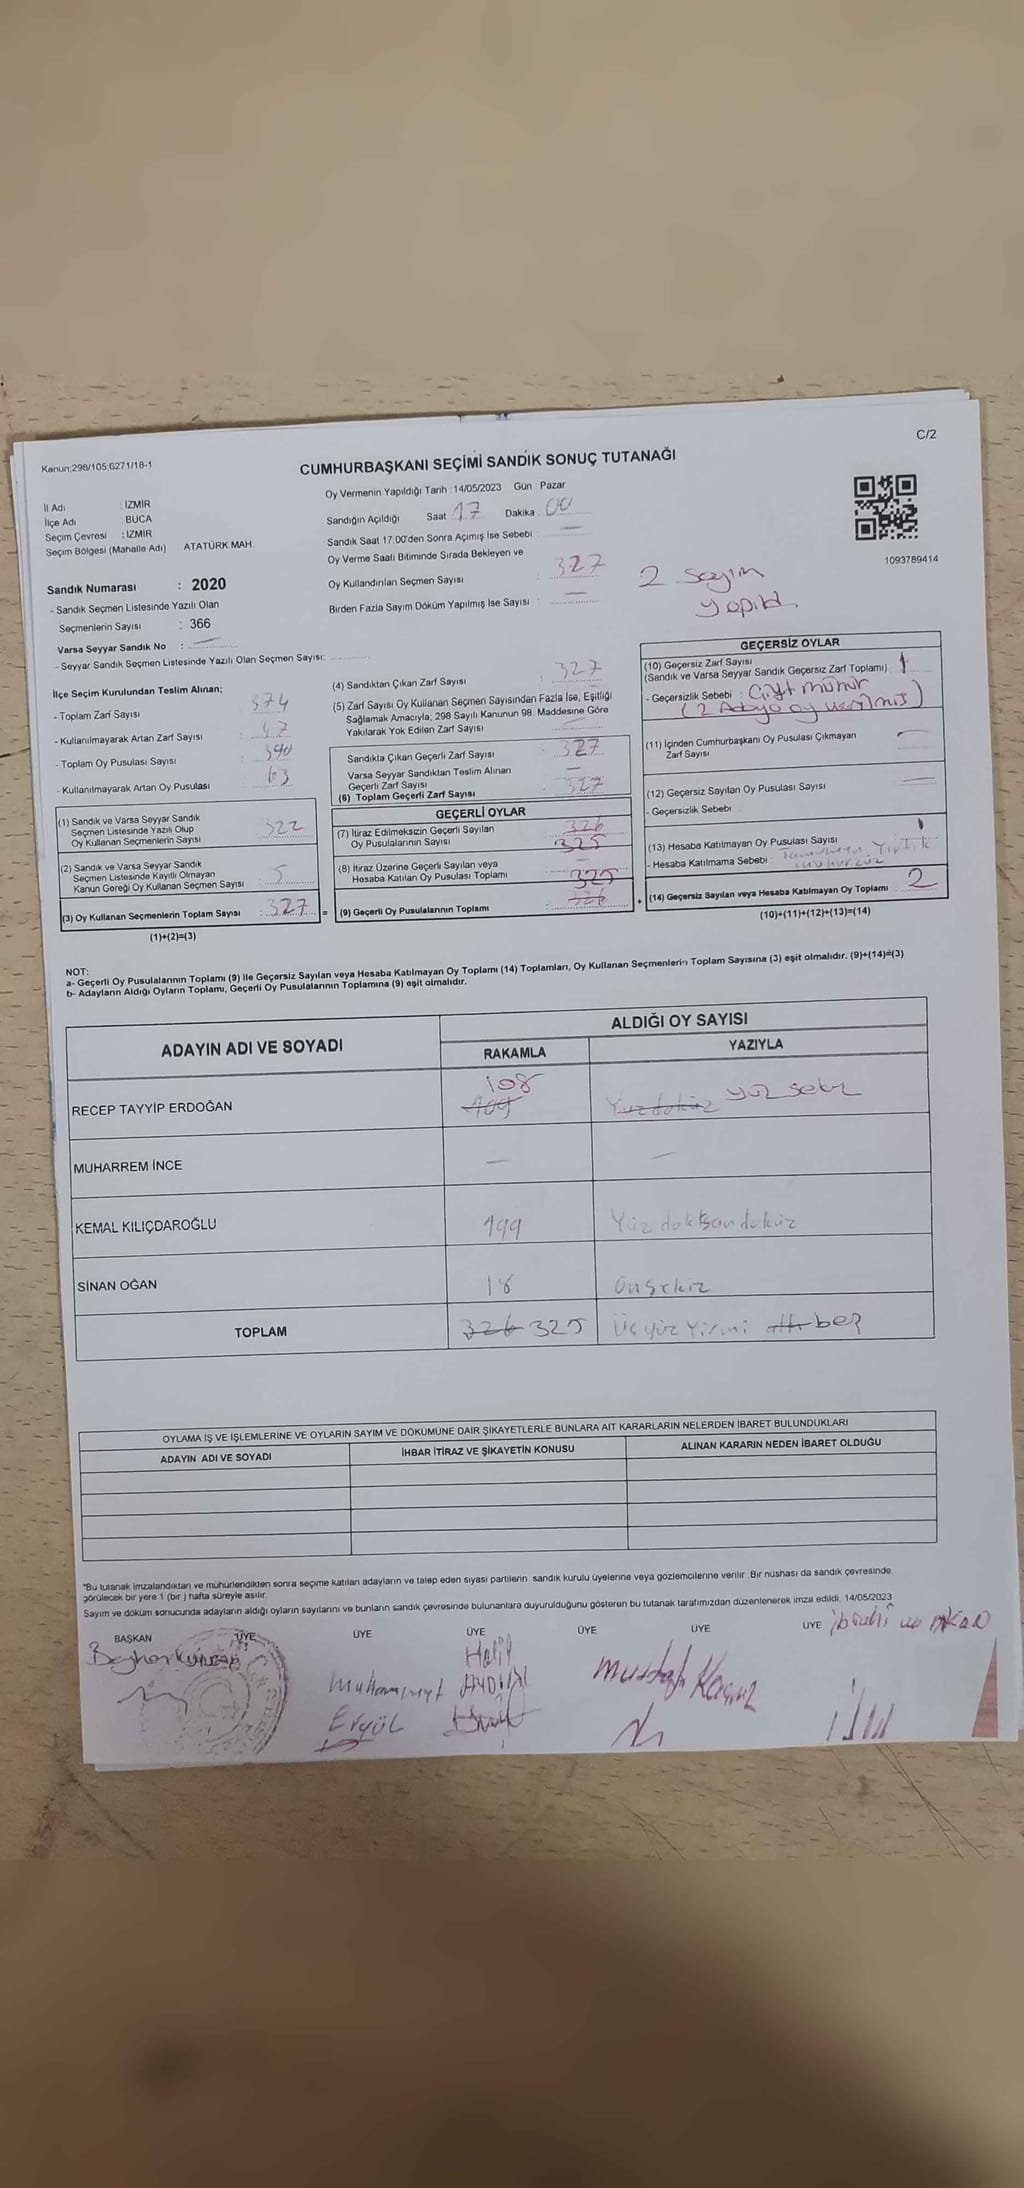 C/2
Kanun:298/105;6271/18-1
CUMHURBAŞKANI SEÇİMİ SANDIK SONUÇ TUTANAĞI
İl Adı : İZMİR
İlçe Adı : BUCA
Seçim Çevresi : İZMİR
Seçim Bölgesi (Mahalle Adı) : ATATÜRK MAH.
Oy Vermenin Yapıldığı Tarih : 14/05/2023 Gün : Pazar
Sandığın Açıldığı Saat 17 Dakika 00
Sandık Saat 17:00'den Sonra Açımış İse Sebebi : —
Oy Verme Saati Bitiminde Sırada Bekleyen ve
Oy Kullandırılan Seçmen Sayısı : 327
Birden Fazla Sayım Döküm Yapılmış İse Sayısı : —
2 sayım
yapıldı.
1093789414
Sandık Numarası : 2020
- Sandık Seçmen Listesinde Yazılı Olan
Seçmenlerin Sayısı : 366
Varsa Seyyar Sandık No : —
- Seyyar Sandık Seçmen Listesinde Yazılı Olan Seçmen Sayısı:
İlçe Seçim Kurulundan Teslim Alınan;
- Toplam Zarf Sayısı : 374
- Kullanılmayarak Artan Zarf Sayısı : 47
- Toplam Oy Pusulası Sayısı : 390
- Kullanılmayarak Artan Oy Pusulası : 63
(1) Sandık ve Varsa Seyyar Sandık
Seçmen Listesinde Yazılı Olup
Oy Kullanan Seçmenlerin Sayısı : 322
(2) Sandık ve Varsa Seyyar Sandık
Seçmen Listesinde Kayıtlı Olmayan
Kanun Gereği Oy Kullanan Seçmen Sayısı : 5
(3) Oy Kullanan Seçmenlerin Toplam Sayısı : 327 =
(1)+(2)=(3)
(4) Sandıktan Çıkan Zarf Sayısı : 327
(5) Zarf Sayısı Oy Kullanan Seçmen Sayısından Fazla İse, Eşitliği
Sağlamak Amacıyla, 298 Sayılı Kanunun 98. Maddesine Göre
Yakılarak Yok Edilen Zarf Sayısı : —
Sandıkta Çıkan Geçerli Zarf Sayısı : 327
Varsa Seyyar Sandıktan Teslim Alınan
Geçerli Zarf Sayısı : —
(6) Toplam Geçerli Zarf Sayısı : 327
GEÇERLİ OYLAR
(7) İtiraz Edilmeksizin Geçerli Sayılan 326
Oy Pusulalarının Sayısı : 325
(8) İtiraz Üzerine Geçerli Sayılan veya
Hesaba Katılan Oy Pusulası Toplamı : 325
(9) Geçerli Oy Pusulalarının Toplamı : 326 +
GEÇERSİZ OYLAR
(10) Geçersiz Zarf Sayısı
(Sandık ve Varsa Seyyar Sandık Geçersiz Zarf Toplamı) : 1
- Geçersizlik Sebebi : Çift mühür
(2 Adaya oy verilmiş)
(11) İçinden Cumhurbaşkanı Oy Pusulası Çıkmayan
Zarf Sayısı : —
(12) Geçersiz Sayılan Oy Pusulası Sayısı : —
- Geçersizlik Sebebi :
(13) Hesaba Katılmayan Oy Pusulası Sayısı : 1
- Hesaba Katılmama Sebebi : Tamamen Yırtık
mühürsüz
(14) Geçersiz Sayılan veya Hesaba Katılmayan Oy Toplamı : 2
(10)+(11)+(12)+(13)=(14)
NOT:
a- Geçerli Oy Pusulalarının Toplamı (9) ile Geçersiz Sayılan veya Hesaba Katılmayan Oy Toplamı (14) Toplamları, Oy Kullanan Seçmenlerin Toplam Sayısına (3) eşit olmalıdır. (9)+(14)=(3)
b- Adayların Aldığı Oyların Toplamı, Geçerli Oy Pusulalarının Toplamına (9) eşit olmalıdır.
ADAYIN ADI VE SOYADI
ALDIĞI OY SAYISI
RAKAMLA
YAZIYLA
RECEP TAYYİP ERDOĞAN 109 108 Yüzdokuz yüz sekiz
MUHARREM İNCE — —
KEMAL KILIÇDAROĞLU 199 Yüz doksan dokuz
SİNAN OĞAN 18 onsekiz
TOPLAM 326 325 Üçyüz Yirmi altı beş
OYLAMA İŞ VE İŞLEMLERİNE VE OYLARIN SAYIM VE DÖKÜMÜNE DAİR ŞİKAYETLERLE BUNLARA AİT KARARLARIN NELERDEN İBARET BULUNDUKLARI
ADAYIN ADI VE SOYADI
İHBAR İTİRAZ VE ŞİKAYETİN KONUSU
ALINAN KARARIN NEDEN İBARET OLDUĞU
*Bu tutanak imzalandıktan ve mühürlendikten sonra seçime katılan adayların ve talep eden siyasi partilerin sandık kurulu üyelerine veya gözlemcilerine verilir. Bir nüshası da sandık çevresinde
görülecek bir yere 1 (bir ) hafta süreyle asılır.
Sayım ve döküm sonucunda adayların aldığı oyların sayılarını ve bunların sandık çevresinde bulunanlara duyurulduğunu gösteren bu tutanak tarafımızdan düzenlenerek imza edildi. 14/05/2023
BAŞKAN ÜYE ÜYE ÜYE ÜYE ÜYE ÜYE
Muhammet
Ergül
Halil
Mustafa